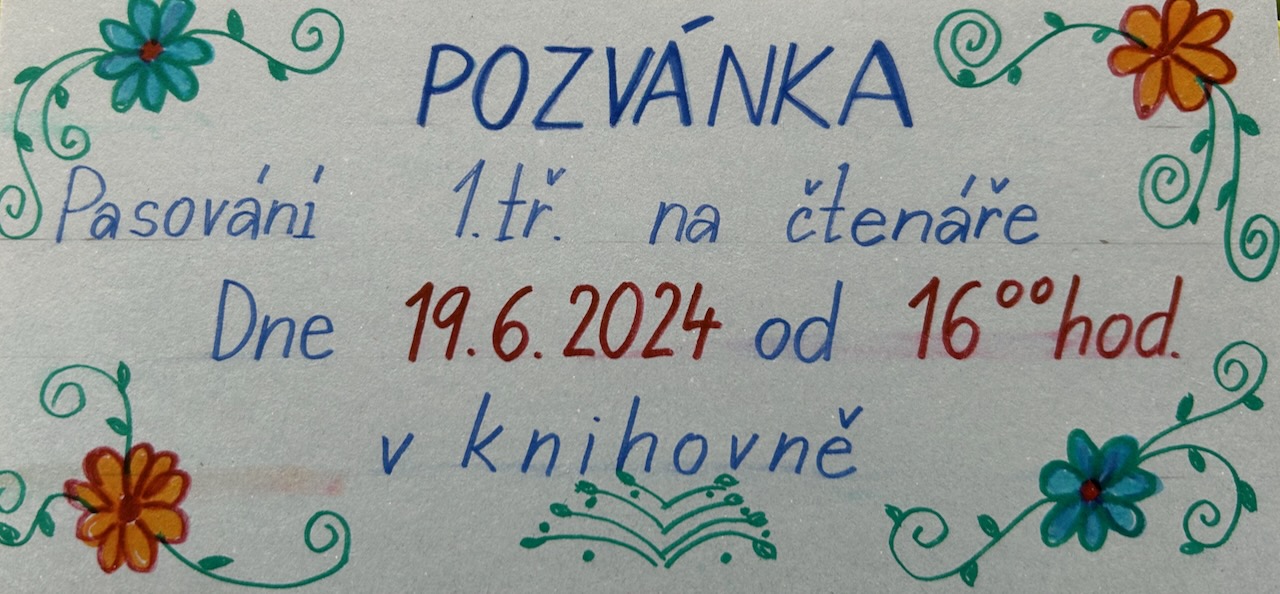 POZVÁNKA
Pasování 1.tř. na čtenáře
Dne 19.6.2024 od 16°° hod.
v knihovně